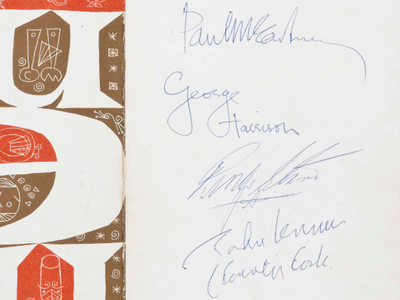 Paul McCartney
George
Harrison
Ringo Starr
John Lennon
(County Cork